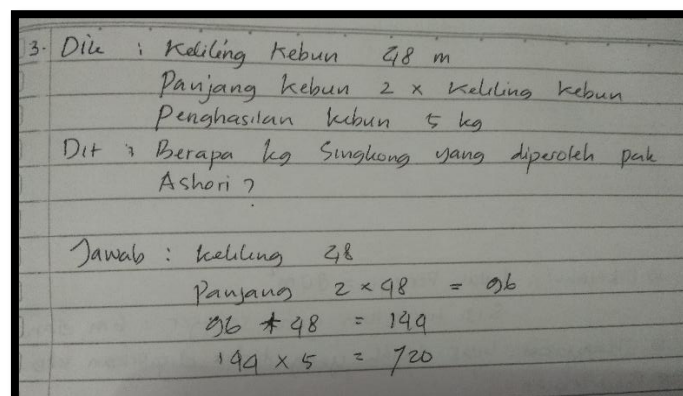 3. Dik : Keliling Kebun 48 m
Panjang kebun 2 x keliling kebun
Penghasilan kebun 5 kg
Dit : Berapa kg Singkong yang diperoleh pak
Ashori ?
Jawab : keliling 48
Panjang 2 x 48 = 96
96 + 48 = 144
144 x 5 = 720